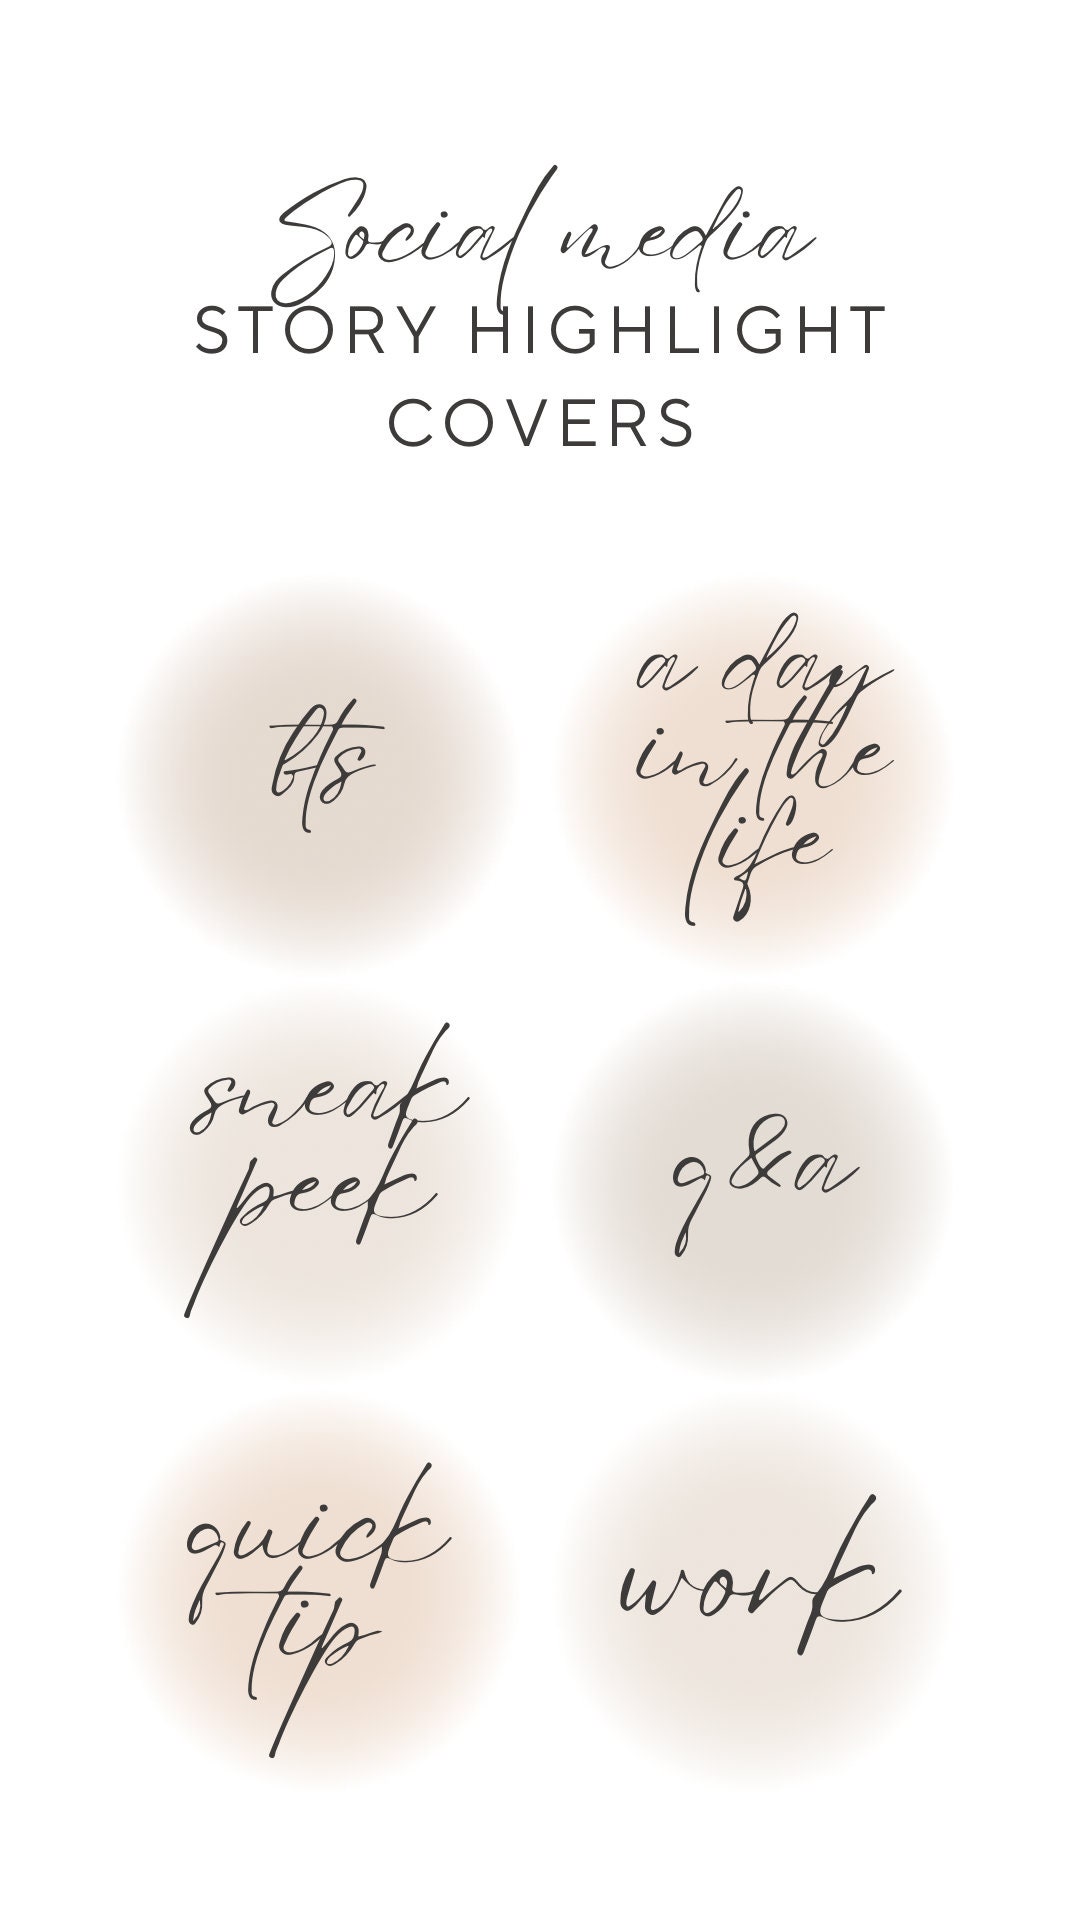 Social media
STORY HIGHLIGHT
COVERS
bts
a day
in the
life
sneak
peek
q&a
quick
tip
work